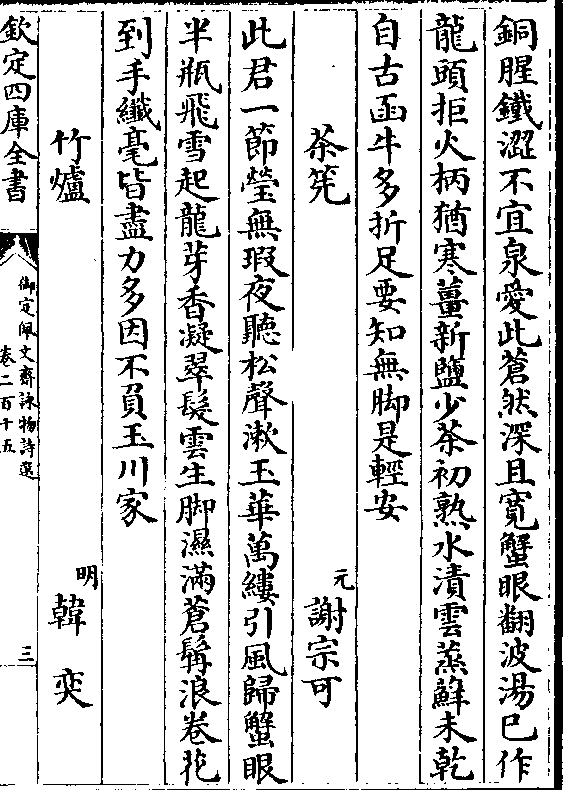 銅腥鐵澀不宜泉愛此蒼然深且寛蟹眼翻波湯已作
龍頭拒火柄猶寒薑新鹽少茶初熟水漬雲蒸蘚未乾
自古函牛多折足要知無脚是輕安
茶筅 元 謝宗可
此君一節瑩無瑕夜聽松聲漱玉華萬縷引風歸蟹眼
半瓶飛雪起龍芽香凝翠髮雲生脚濕滿蒼髯浪卷花
到手纖毫皆盡力多因不負玉川家
竹爐 明 韓奕
欽定四庫全書 御定佩文齋詠物詩選 卷二百十五 三